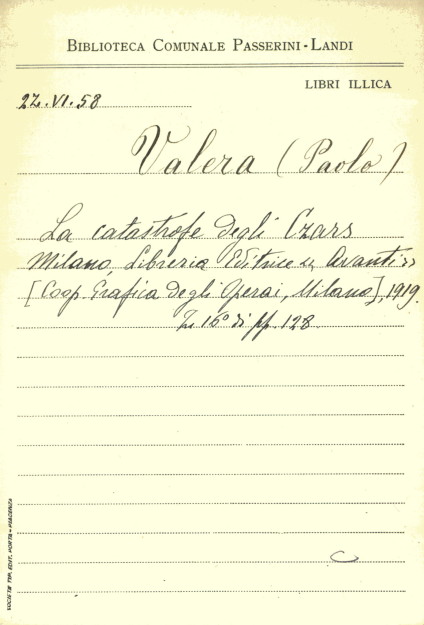 BIBLIOTECA COMUNALE PASSERINI-LANDI
LIBRI ILLICA
22.VI.58
Valera (Paolo)
La catastrofe degli Czars
Milano, Libreria Editrice « Avanti »
[Coop. Grafica degli Operai, Milano], 1919.
In 16° di pp. 128.
SOCIETÀ TIP. EDIT. PORTA - PIACENZA
C